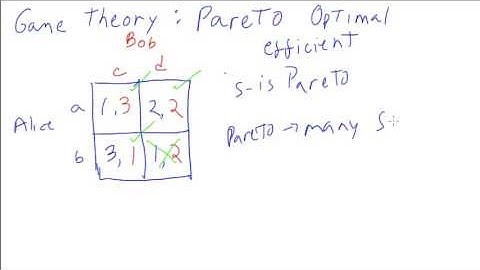 Game Theory : Pareto Optimal
efficient
Bob
c d
's-is Pareto
a 1,3 2,2
Alice
Pareto → many S
b 3,1 1,2